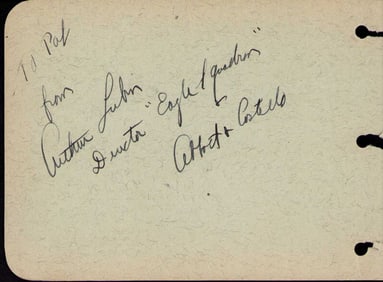 To Pat
from
Arthur Lubin
Director "Eagle Squadron"
&
Abbott & Costello